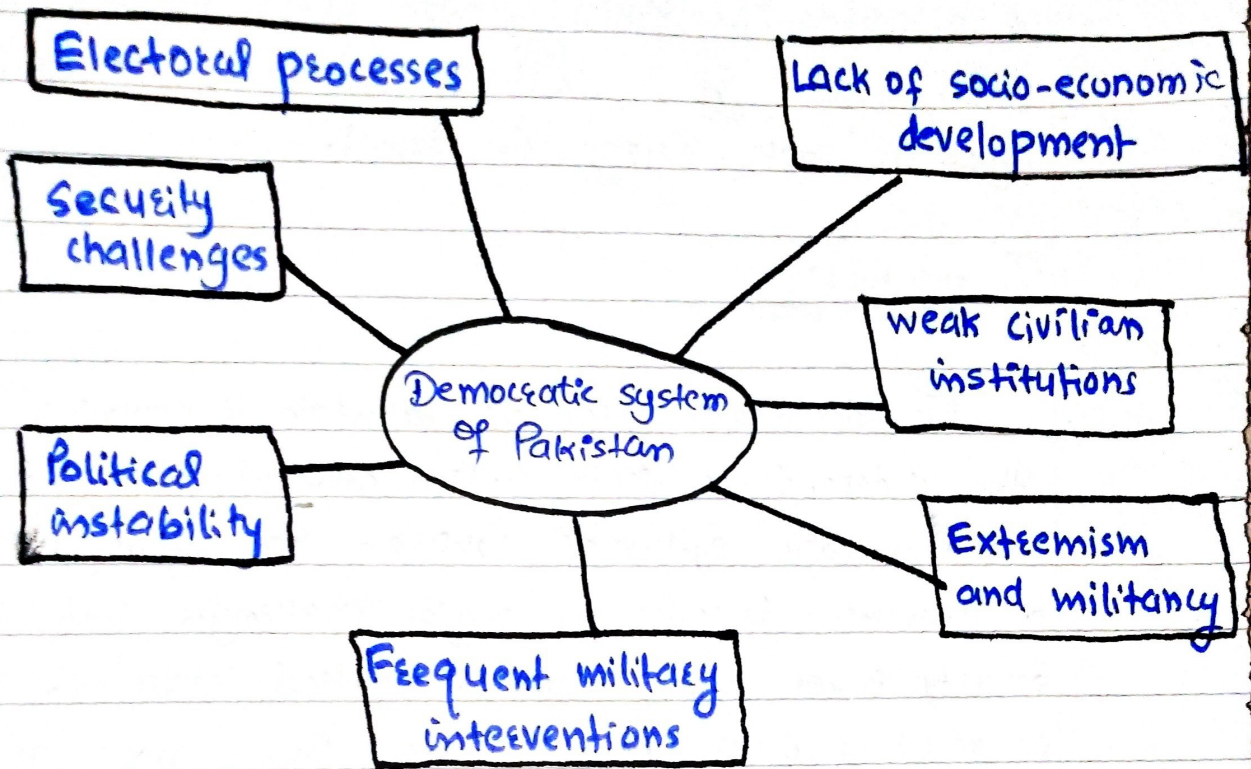 Electoral processes
Lack of socio-economic
development
Security
challenges
weak civilian
institutions
Democratic system
of Pakistan
Political
instability
Extremism
and militancy
Frequent military
interventions